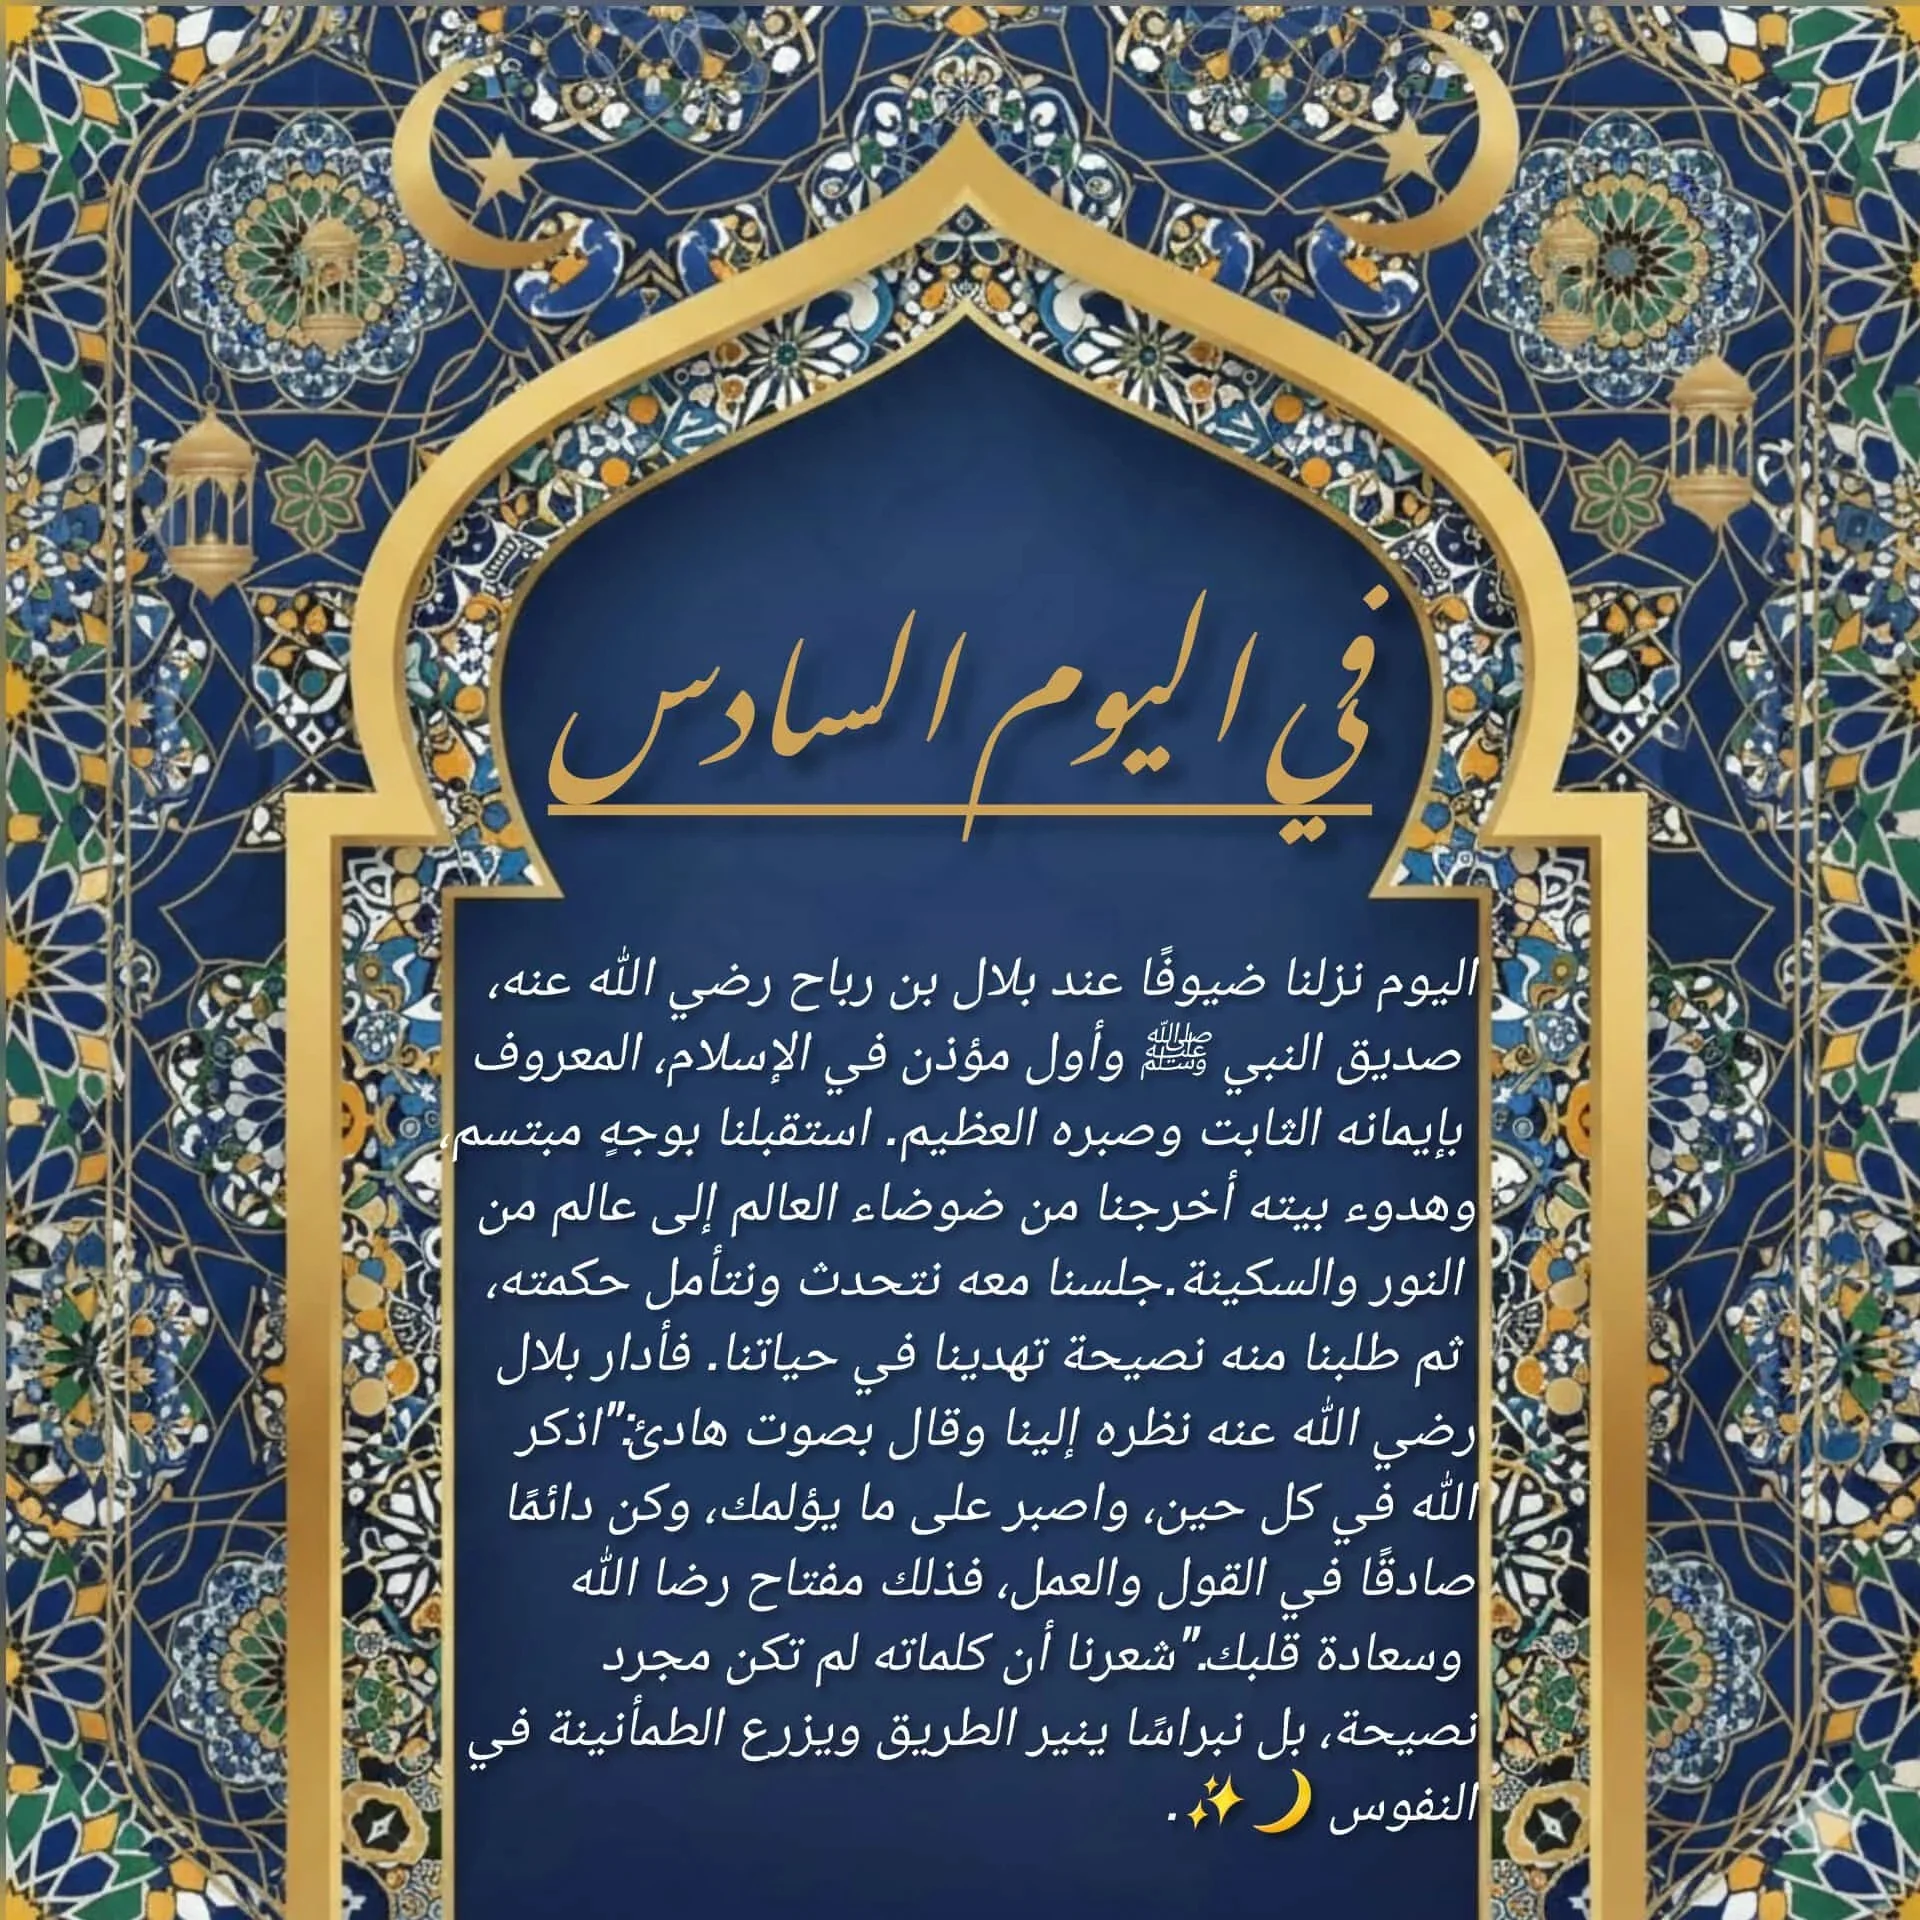 في اليوم السادس
اليوم نزلنا ضيوفًا عند بلال بن رباح رضي الله عنه،
صديق النبي ﷺ وأول مؤذن في الإسلام، المعروف
بإيمانه الثابت وصبره العظيم. استقبلنا بوجهٍ مبتسم،
وهدوء بيته أخرجنا من ضوضاء العالم إلى عالم من
النور والسكينة.جلسنا معه نتحدث ونتأمل حكمته،
ثم طلبنا منه نصيحة تهدينا في حياتنا. فأدار بلال
رضي الله عنه نظره إلينا وقال بصوت هادئ:"اذكر
الله في كل حين، واصبر على ما يؤلمك، وكن دائمًا
صادقًا في القول والعمل، فذلك مفتاح رضا الله
وسعادة قلبك."شعرنا أن كلماته لم تكن مجرد
نصيحة، بل نبراسًا ينير الطريق ويزرع الطمأنينة في
النفوس 🌙✨.